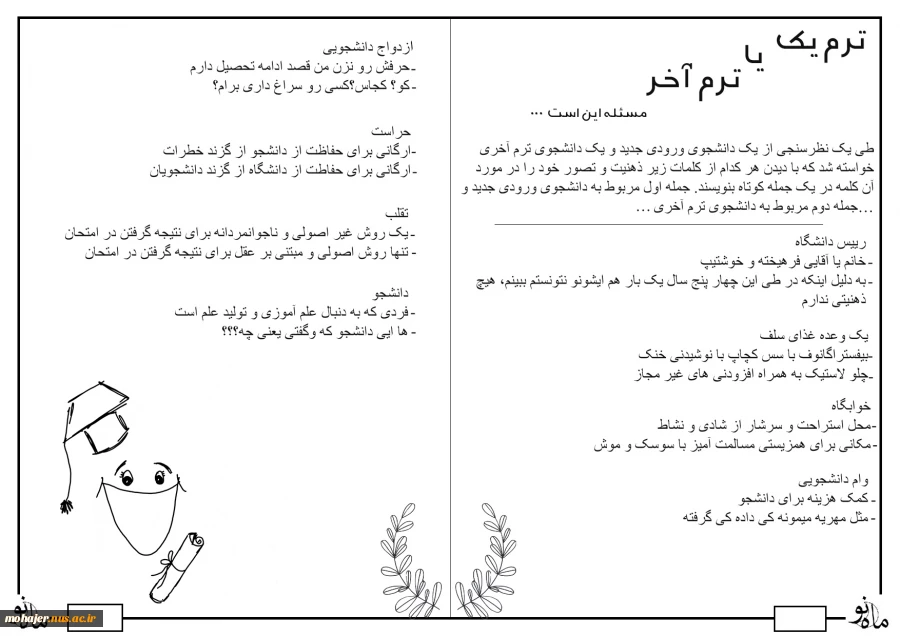 ترم یک
یا
ترم آخر
مسئله این است ...
طی یک نظرسنجی از یک دانشجوی ورودی جدید و یک دانشجوی ترم آخری
خواسته شد که با دیدن هر کدام از کلمات زیر ذهنیت و تصور خود را در مورد
آن کلمه در یک جمله کوتاه بنویسند. جمله اول مربوط به دانشجوی ورودی جدید و
...جمله دوم مربوط به دانشجوی ترم آخری ...
رییس دانشگاه
- خانم یا آقایی فرهیخته و خوشتیپ
- به دلیل اینکه در طی این چهار پنج سال یک بار هم ایشونو نتونستم ببینم، هیچ
ذهنیتی ندارم
یک وعده غذای سلف
-بیفستراگانوف با سس کچاپ با نوشیدنی خنک
-چلو لاستیک به همراه افزودنی های غیر مجاز
خوابگاه
-محل استراحت و سرشار از شادی و نشاط
-مکانی برای همزیستی مسالمت آمیز با سوسک و موش
وام دانشجویی
- کمک هزینه برای دانشجو
- مثل مهریه میمونه کی داده کی گرفته
ازدواج دانشجویی
-حرفش رو نزن من قصد ادامه تحصیل دارم
- کو؟ کجاس؟کسی رو سراغ داری برام؟
حراست
-ارگانی برای حفاظت از دانشجو از گزند خطرات
- ارگانی برای حفاطت از دانشگاه از گزند دانشجویان
تقلب
- یک روش غیر اصولی و ناجوانمردانه برای نتیجه گرفتن در امتحان
- تنها روش اصولی و مبتنی بر عقل برای نتیجه گرفتن در امتحان
دانشجو
- فردی که به دنبال علم آموزی و تولید علم است
- ها ایی دانشجو که وگفتی یعنی چه؟؟؟
ماه نو
ماه نو
mohajer.nus.ac.ir